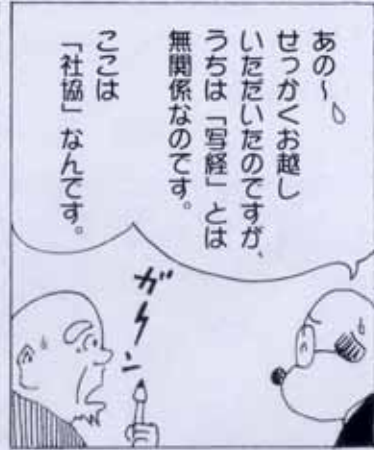 あの～
せっかくお越し
いただいたのですが、
うちは「写経」とは
無関係なのです。
ここは
「社協」なんです。
ガーン